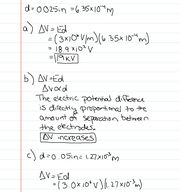 d = 0.025in = 6.35×10⁻⁴m
a) ΔV = Ed
= (3×10⁶ V/m)(6.35×10⁻⁴m)
= 18.9×10² V
= 19kV
b) ΔV = Ed
ΔV∝d
The electric potential difference
is directly proportional to the
amount of separation between
the electrodes.
ΔV increases
c) d = 0.05in = 1.27×10⁻³m
ΔV = Ed
= (3.0×10⁶ V)(1.27×10⁻³m)